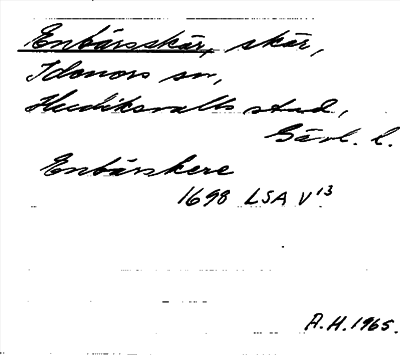 Enbärsskär, skär,
Idenors sn,
Hudiksvalls stad,
Gävl. l.
Enbärskere
1698 LSA V 13
A.H. 1965.